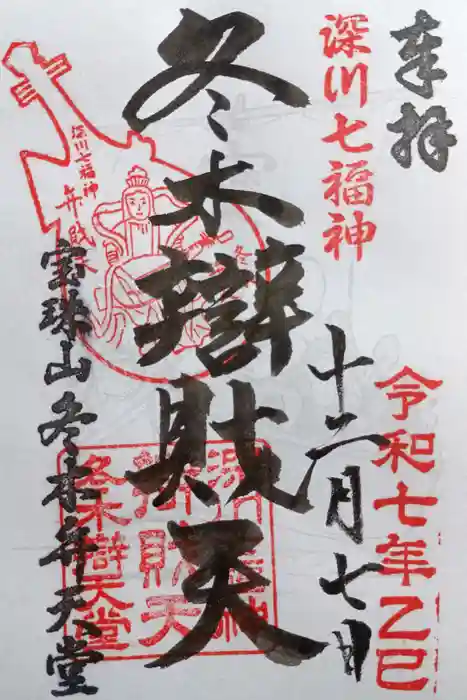 奉拝
深川七福神
令和七年乙巳
十二月七日
冬木辯財天
深川七福神
弁財天
宝珠山冬木弁天堂
深川七福神
辯財天
冬木辯天堂